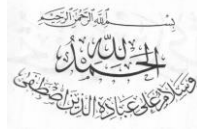 بِسْمِ اللهِ الرَّحْمٰنِ الرَّحِيْمِ
اَلْحَمْدُ لِلّٰهِ
وَسَلَامٌ عَلٰى عِبَادِهِ الَّذِيْنَ اصْطَفٰى